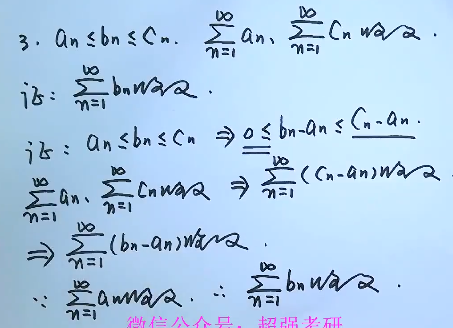 3. an ≤ bn ≤ Cn. ∑_{n=1}^{∞} an、∑_{n=1}^{∞} Cn 收敛.
证: ∑_{n=1}^{∞} bn 收敛.
证: an ≤ bn ≤ Cn ⇒ 0 ≤ bn-an ≤ Cn-an.
∑_{n=1}^{∞} an、∑_{n=1}^{∞} Cn 收敛 ⇒ ∑_{n=1}^{∞} (Cn-an) 收敛
⇒ ∑_{n=1}^{∞} (bn-an) 收敛.
∵ ∑_{n=1}^{∞} an 收敛. ∴ ∑_{n=1}^{∞} bn 收敛.
微信公众号: 超强考研